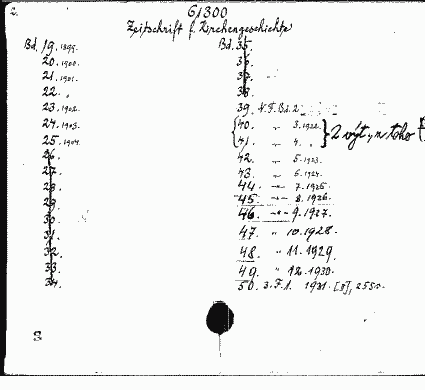 2.
G1300
Zeitschrift f. Kirchengeschichte
Bd. 19. 1899.
20. 1900.
21. 1901.
22. "
23. 1902.
24. 1903.
25. 1904.
26.
27.
28.
29.
30.
31.
32.
33.
34.
S
Bd. 35.
36.
37.
38.
39. N.F. Bd. 2
40. " 3. 1922.
41. " 4. "
2 výt. z toho
42. " 5. 1923.
43. " 6. 1924.
44 -"- 7. 1925.
45. -"- 8. 1926.
46. -"- 9. 1927.
47. " 10. 1928.
48. " 11. 1929.
49. " 12. 1930.
50. 3. F. 1. 1931